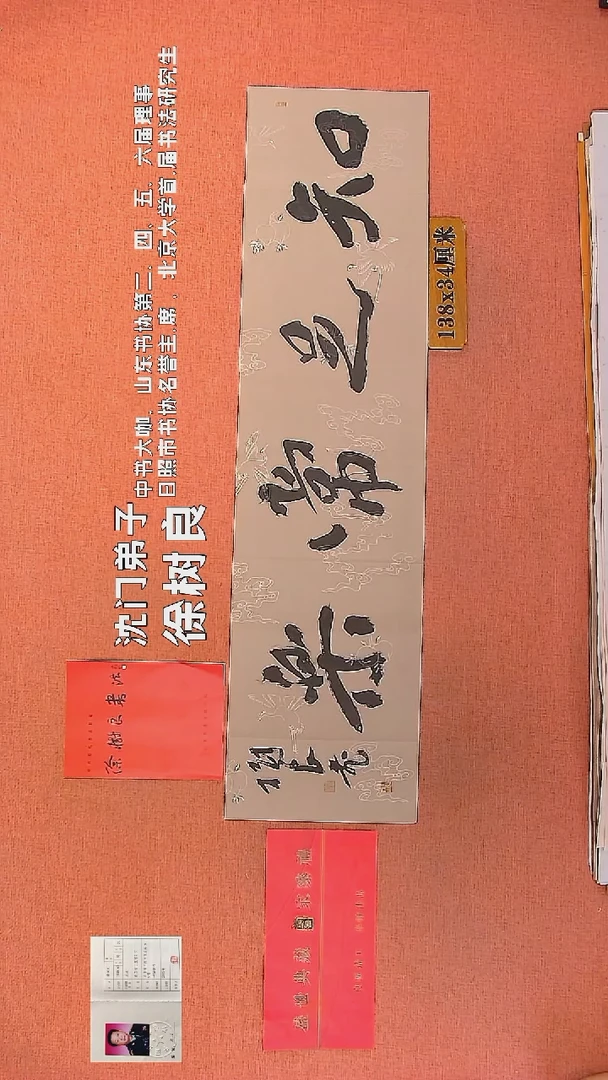 沈门弟子
徐树良
中书大咖、山东书协第二、四、五、六届理事
日照市书协名誉主席、北京大学首届书法研究生
知足常樂
138x34厘米
徐樹良書法
盛世典藏